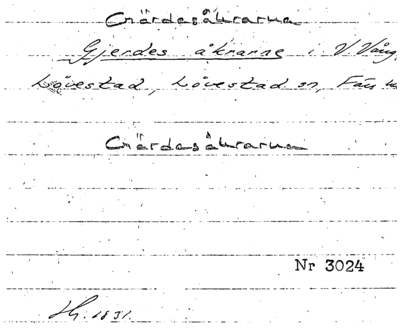 Gärdesåkrarna
Gjerdes åkrarne i V Vång
Lövestad, Lövestad sn, Färs
Gärdesåkrarna
Nr 3024
1831.